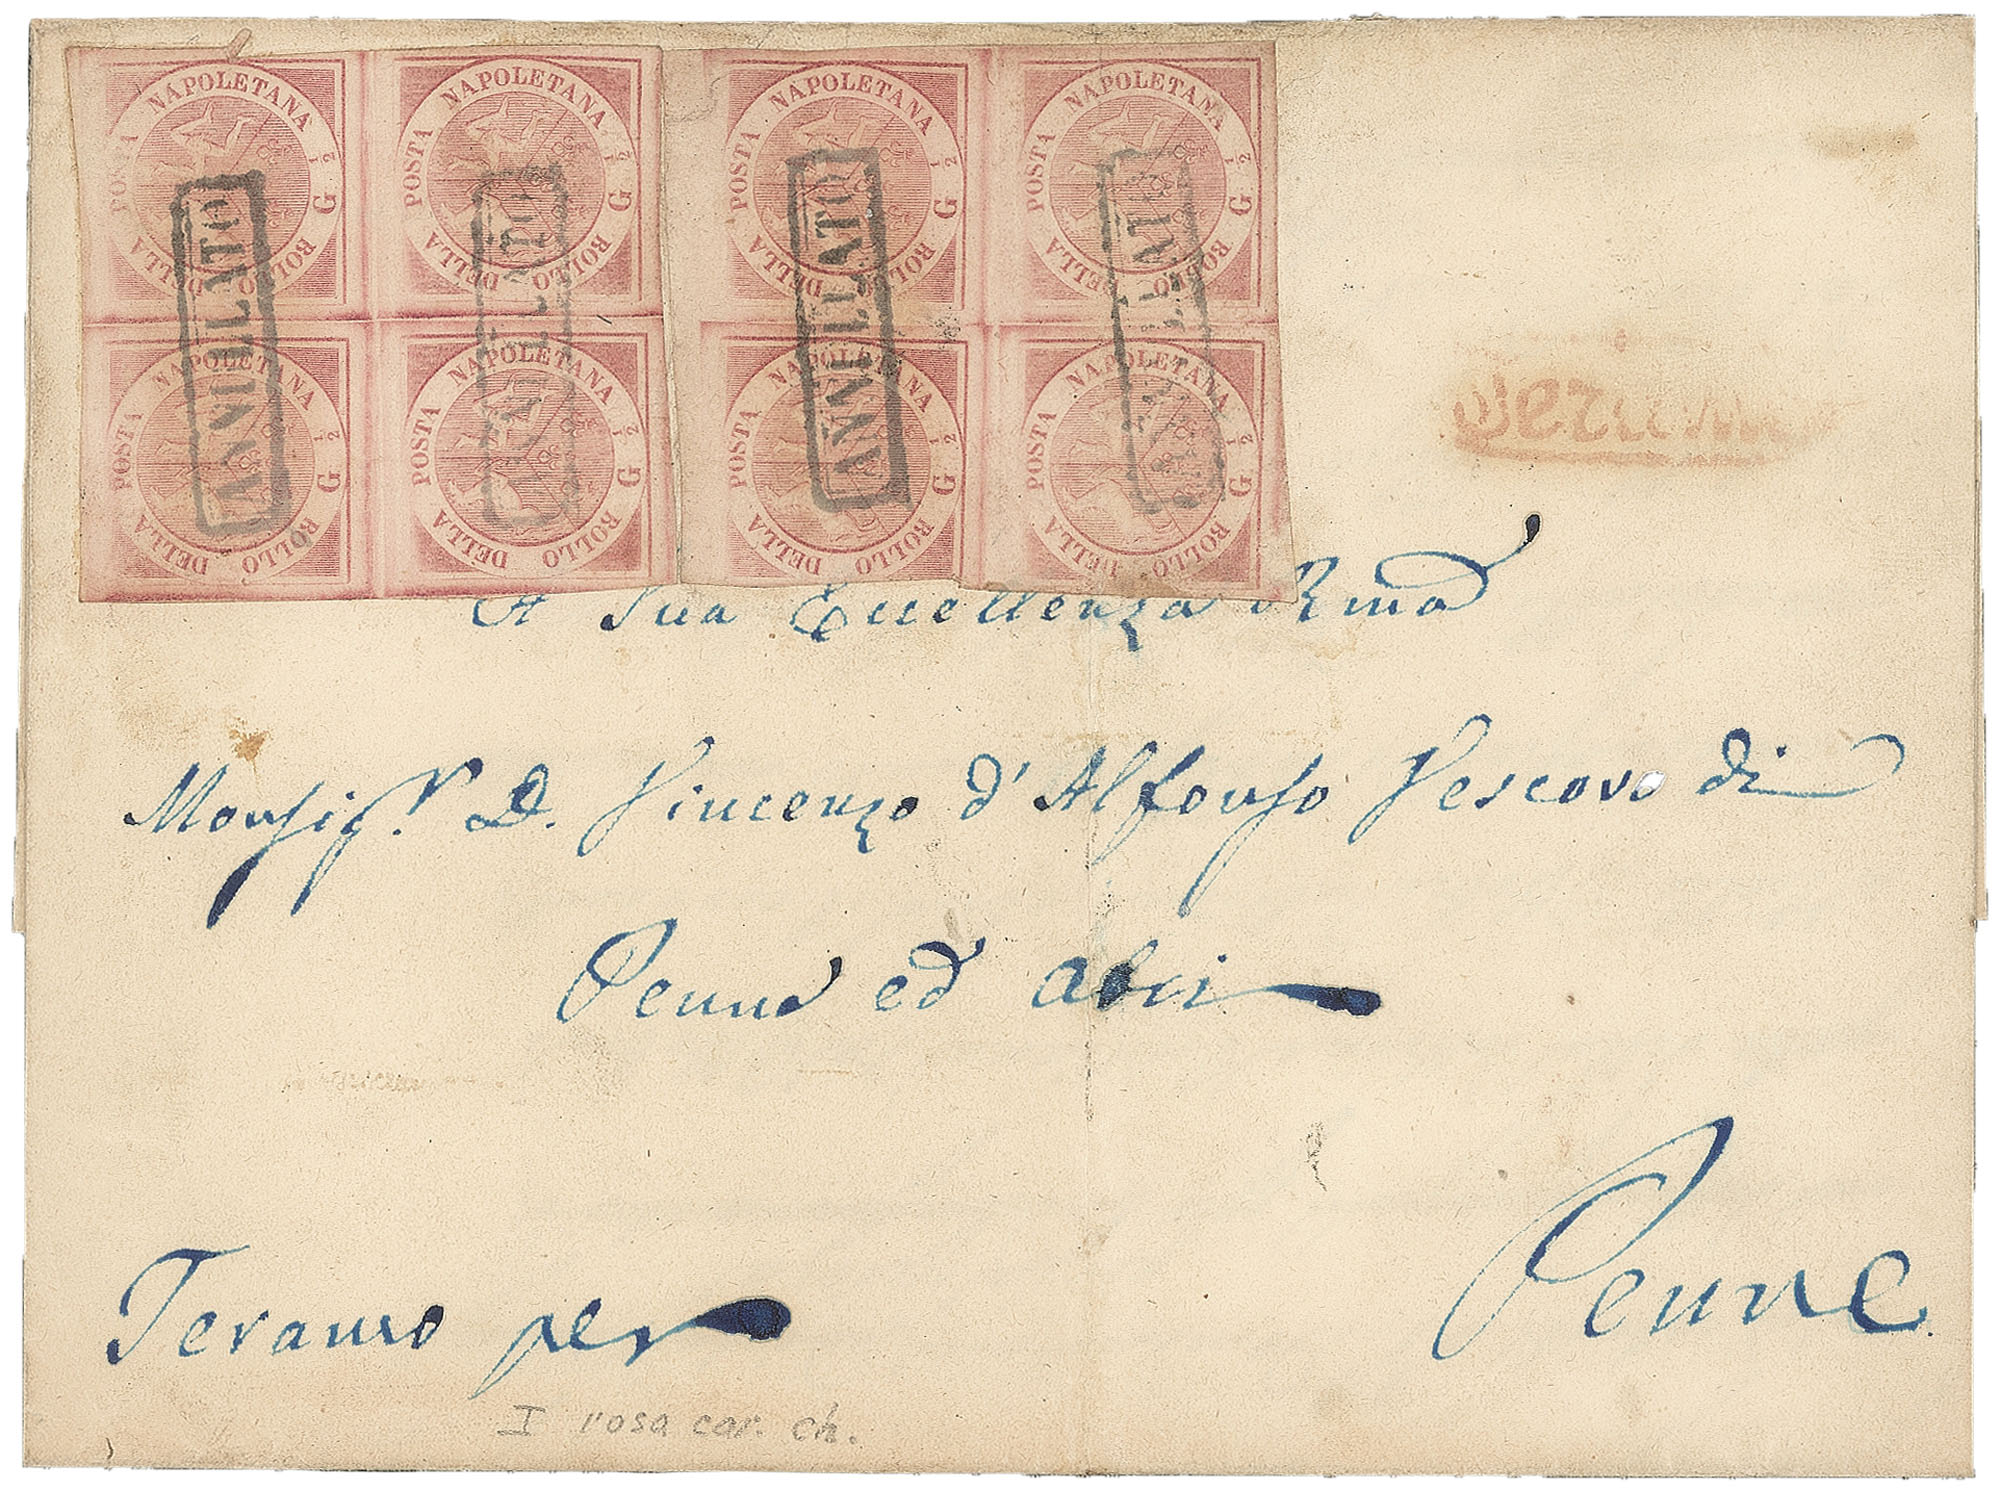 POSTA NAPOLETANA G 1/2 BOLLO DELLA
POSTA NAPOLETANA G 1/2 BOLLO DELLA
POSTA NAPOLETANA G 1/2 BOLLO DELLA
POSTA NAPOLETANA G 1/2 BOLLO DELLA
POSTA NAPOLETANA G 1/2 BOLLO DELLA
POSTA NAPOLETANA G 1/2 BOLLO DELLA
POSTA NAPOLETANA G 1/2 BOLLO DELLA
POSTA NAPOLETANA G 1/2 BOLLO DELLA
ANNULLATO
ANNULLATO
ANNULLATO
ANNULLATO
A Sua Eccellenza Rma
Monsigr. D. Vincenzo d'Alfonso Vescovo di
Penne ed Atri
Teramo per
Penne
I rosa car. ch.